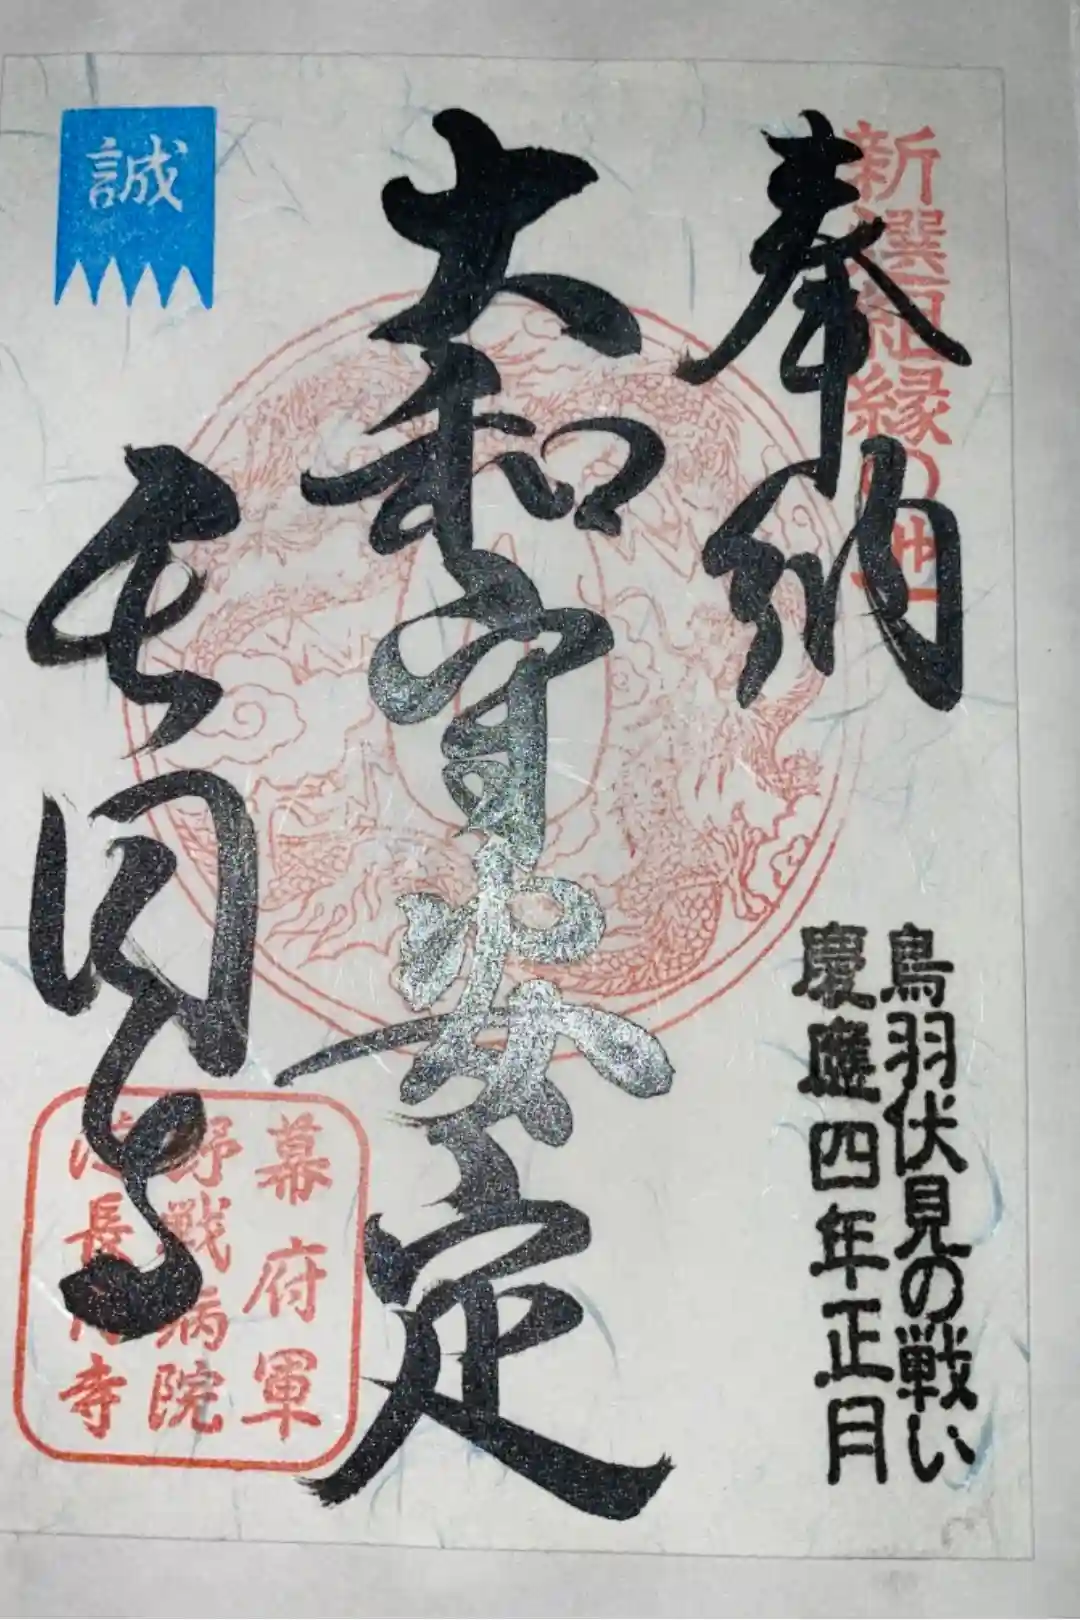 新選組縁の地
奉納
鳥羽伏見の戦い
慶應四年正月
大和守安定
誠
長円寺
幕府軍
野戦病院
淀長円寺